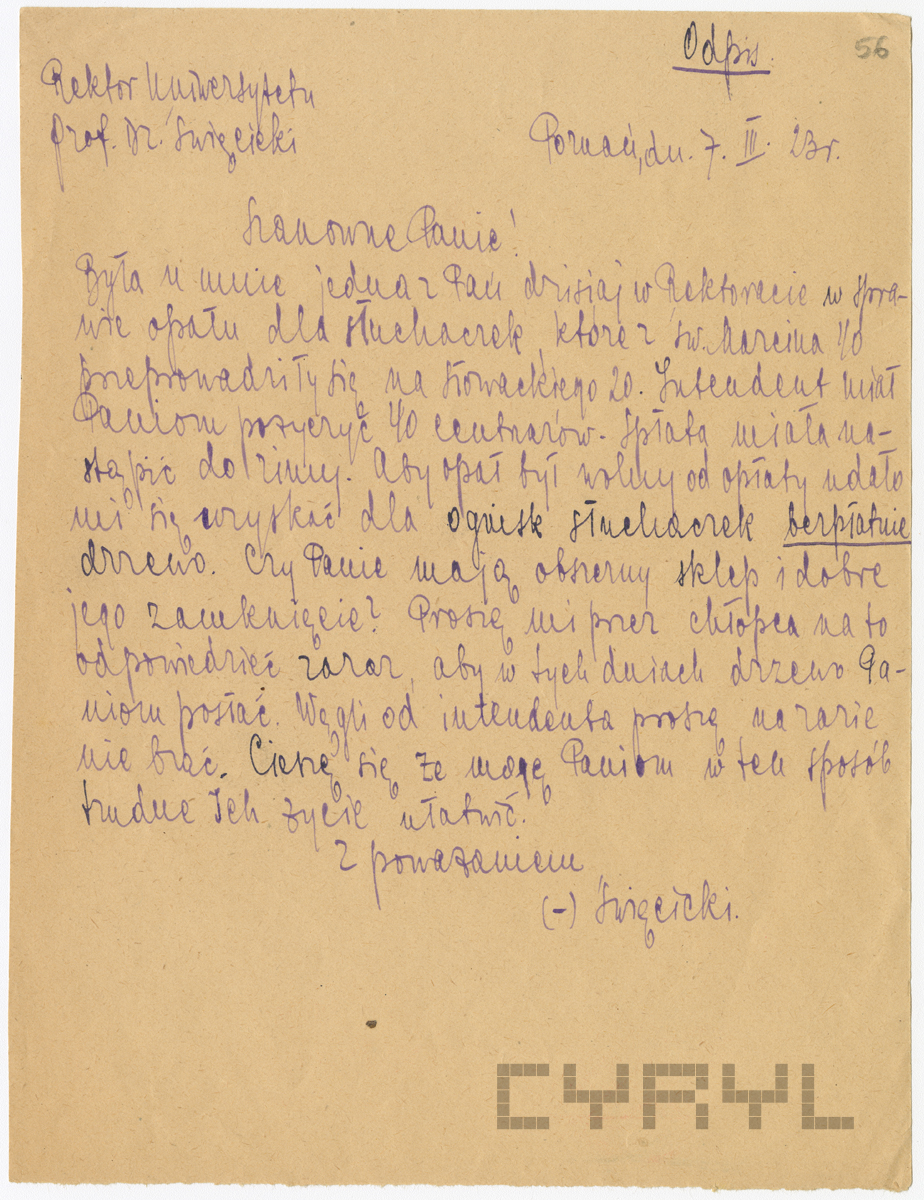 Odpis.
56
Rektor Uniwersytetu
Prof. Dr. Święcicki
Poznań, dn. 7. III. 23 r.
Szanowne Panie!
Była u mnie jedna z Pań dzisiaj w Rektoracie w spra-
wie opału dla słuchaczek, które z św. Marcina 40
przeprowadziły się na Słowackiego 20. Intendent miał
Paniom pożyczyć 40 centnarów. Spłata miała na-
stąpić do zimy. Aby opał był wolny od opłaty udało
mi się uzyskać dla ognisk słuchaczek bezpłatnie
drzewo. Czy Panie mają obszerny sklep i dobre
jego zamknięcie? Proszę mi przez chłopca na to
odpowiedzieć zaraz, aby w tych dniach drzewo Pa-
niom posłać. Węgli od intendenta proszę na razie
nie brać. Cieszę się że mogę Paniom w ten sposób
trudne Ich życie ułatwić.
Z poważaniem
(-) Święcicki.
CYRYL